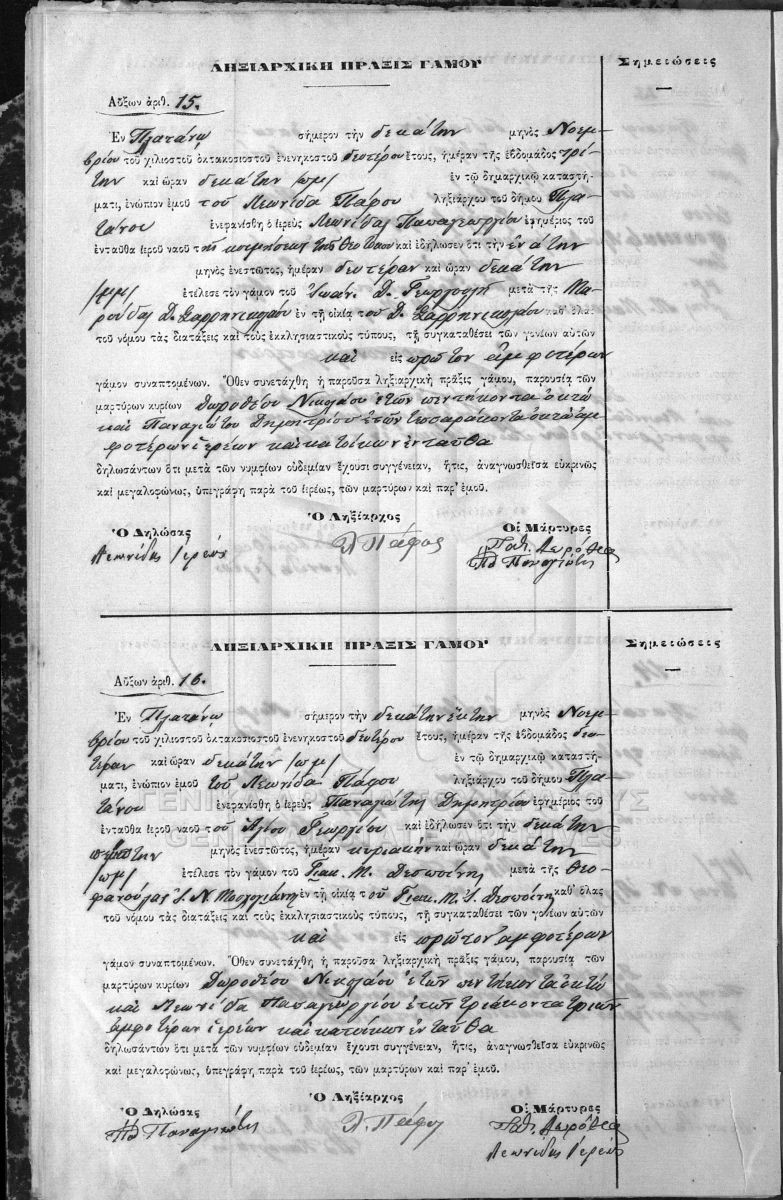 ΛΗΞΙΑΡΧΙΚΗ ΠΡΑΞΙΣ ΓΑΜΟΥ
Σημειώσεις
Αὔξων ἀριθ. 15.
Ἐν Πλατάνῳ σήμερον τὴν δεκάτην μηνὸς Νοεμ-
βρίου τοῦ χιλιοστοῦ ὀκτακοσιοστοῦ ἐνενηκοστοῦ δευτέρου ἔτους, ἡμέραν τῆς ἑβδομάδος τρί-
την καὶ ὥραν δεκάτην /πμ/ ἐν τῷ δημαρχικῷ καταστή-
ματι, ἐνώπιον ἐμοῦ τοῦ Λεωνίδα Πάφου ληξιάρχου τοῦ δήμου Πλα-
τάνου ἐνεφανίσθη ὁ ἱερεὺς Λεωνίδας Παπαγεωργίου ἐφημέριος τοῦ
ἐνταῦθα ἱεροῦ ναοῦ τῆς κοιμήσεως τῆς Θεοτόκου καὶ ἐδήλωσεν ὅτι τὴν ἐνάτην
μηνὸς ἐνεστῶτος, ἡμέραν δευτέραν καὶ ὥραν δεκάτην
/μμ/ ἐτέλεσε τὸν γάμον τοῦ Ἰωαν. Δ. Γεωργούλη μετὰ τῆς Μα-
ρούδας Δ. Σαρρηνικολάου ἐν τῇ οἰκίᾳ τοῦ Δ. Σαρρηνικολάου καθ' ὅλας
τοῦ νόμου τὰς διατάξεις καὶ τοὺς ἐκκλησιαστικοὺς τύπους, τῇ συγκαταθέσει τῶν γονέων αὐτῶν
καὶ εἰς πρῶτον ἀμφοτέρων
γάμον συναπτομένων. Ὅθεν συνετάχθη ἡ παροῦσα ληξιαρχικὴ πρᾶξις γάμου, παρουσίᾳ τῶν
μαρτύρων κυρίων Δωροθέου Νικολάου ἐτῶν πεντήκοντα ὀκτὼ
καὶ Παναγιώτου Δημητρίου ἐτῶν τεσσαράκοντα ὀκτὼ ἀμ-
φοτέρων ἱερέων καὶ κατοίκων ἐνταῦθα
δηλωσάντων ὅτι μετὰ τῶν νυμφίων οὐδεμίαν ἔχουσι συγγένειαν, ἥτις, ἀναγνωσθεῖσα εὐκρινῶς
καὶ μεγαλοφώνως, ὑπεγράφη παρὰ τοῦ ἱερέως, τῶν μαρτύρων καὶ παρ' ἐμοῦ.
Ὁ Δηλώσας Ὁ Ληξίαρχος Οἱ Μάρτυρες
Λεωνίδας Ἱερεύς Λ Πάφος
Παναγιώτης
ΛΗΞΙΑΡΧΙΚΗ ΠΡΑΞΙΣ ΓΑΜΟΥ
Σημειώσεις
Αὔξων ἀριθ. 16.
Ἐν Πλατάνῳ σήμερον τὴν δεκάτην ἕκτην μηνὸς Νοεμ-
βρίου τοῦ χιλιοστοῦ ὀκτακοσιοστοῦ ἐνενηκοστοῦ δευτέρου ἔτους, ἡμέραν τῆς ἑβδομάδος δευ-
τέραν καὶ ὥραν δεκάτην /πμ/ ἐν τῷ δημαρχικῷ καταστή-
ματι, ἐνώπιον ἐμοῦ τοῦ Λεωνίδα Πάφου ληξιάρχου τοῦ δήμου Πλα-
τάνου ἐνεφανίσθη ὁ ἱερεὺς Παναγιώτης Δημητρίου ἐφημέριος τοῦ
ἐνταῦθα ἱεροῦ ναοῦ τοῦ Ἁγίου Γεωργίου καὶ ἐδήλωσεν ὅτι τὴν δεκάτην
πέμπτην μηνὸς ἐνεστῶτος, ἡμέραν κυριακὴν καὶ ὥραν δεκάτην
/πμ/ ἐτέλεσε τὸν γάμον τοῦ Γιακ. Μ. Δεσποίνη μετὰ τῆς Θεο-
φανούλας Ν. ἐν τῇ οἰκίᾳ τοῦ Γιακ. Μ. Δεσποίνη καθ' ὅλας
τοῦ νόμου τὰς διατάξεις καὶ τοὺς ἐκκλησιαστικοὺς τύπους, τῇ συγκαταθέσει τῶν γονέων αὐτῶν
καὶ εἰς πρῶτον ἀμφοτέρων
γάμον συναπτομένων. Ὅθεν συνετάχθη ἡ παροῦσα ληξιαρχικὴ πρᾶξις γάμου, παρουσίᾳ τῶν
μαρτύρων κυρίων Δωροθέου Νικολάου ἐτῶν πεντήκοντα ὀκτὼ
καὶ Λεωνίδα Παπαγεωργίου ἐτῶν τριάκοντα τριῶν
ἀμφοτέρων ἱερέων καὶ κατοίκων ἐνταῦθα
δηλωσάντων ὅτι μετὰ τῶν νυμφίων οὐδεμίαν ἔχουσι συγγένειαν, ἥτις, ἀναγνωσθεῖσα εὐκρινῶς
καὶ μεγαλοφώνως, ὑπεγράφη παρὰ τοῦ ἱερέως, τῶν μαρτύρων καὶ παρ' ἐμοῦ.
Ὁ Δηλώσας Ὁ Ληξίαρχος Οἱ Μάρτυρες
Παναγιώτης Λ. Πάφος
Λεωνίδας Ἱερεύς